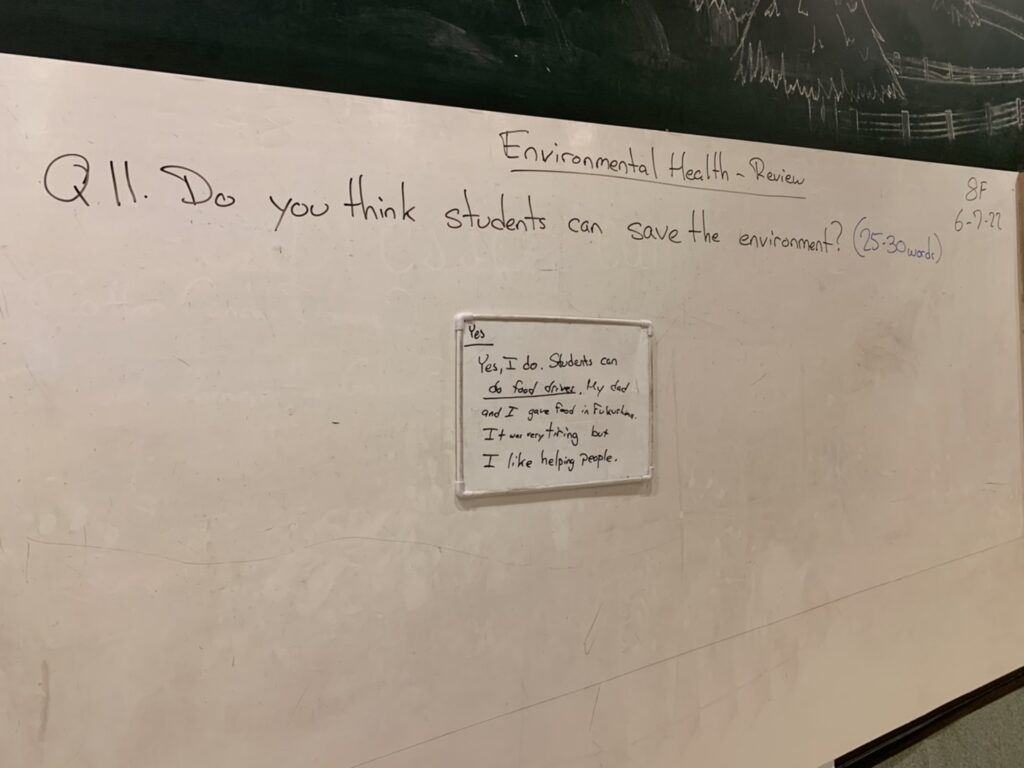 Environmental Health - Review
8F
6-7-22
Q11. Do you think students can save the environment? (25-30 words)
Yes
Yes, I do. Students can
do food drives. My dad
and I gave food in Fukushima.
It was very tiring but
I like helping people.